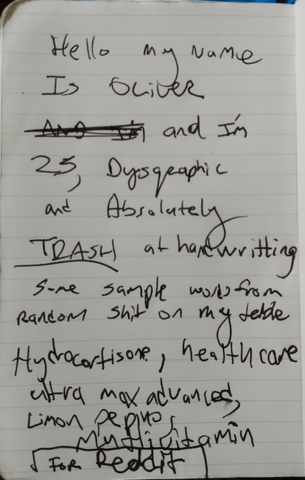 Hello my name
Is Oliver
And I'm and I'm
25, Dysgraphic
and Absolutely
TRASH at handwritting
some sample words from
Random shit on my table
Hydrocortisone, healthcare
ultra max advanced,
Limon pepino,
Multivitamin
FOR Reddit